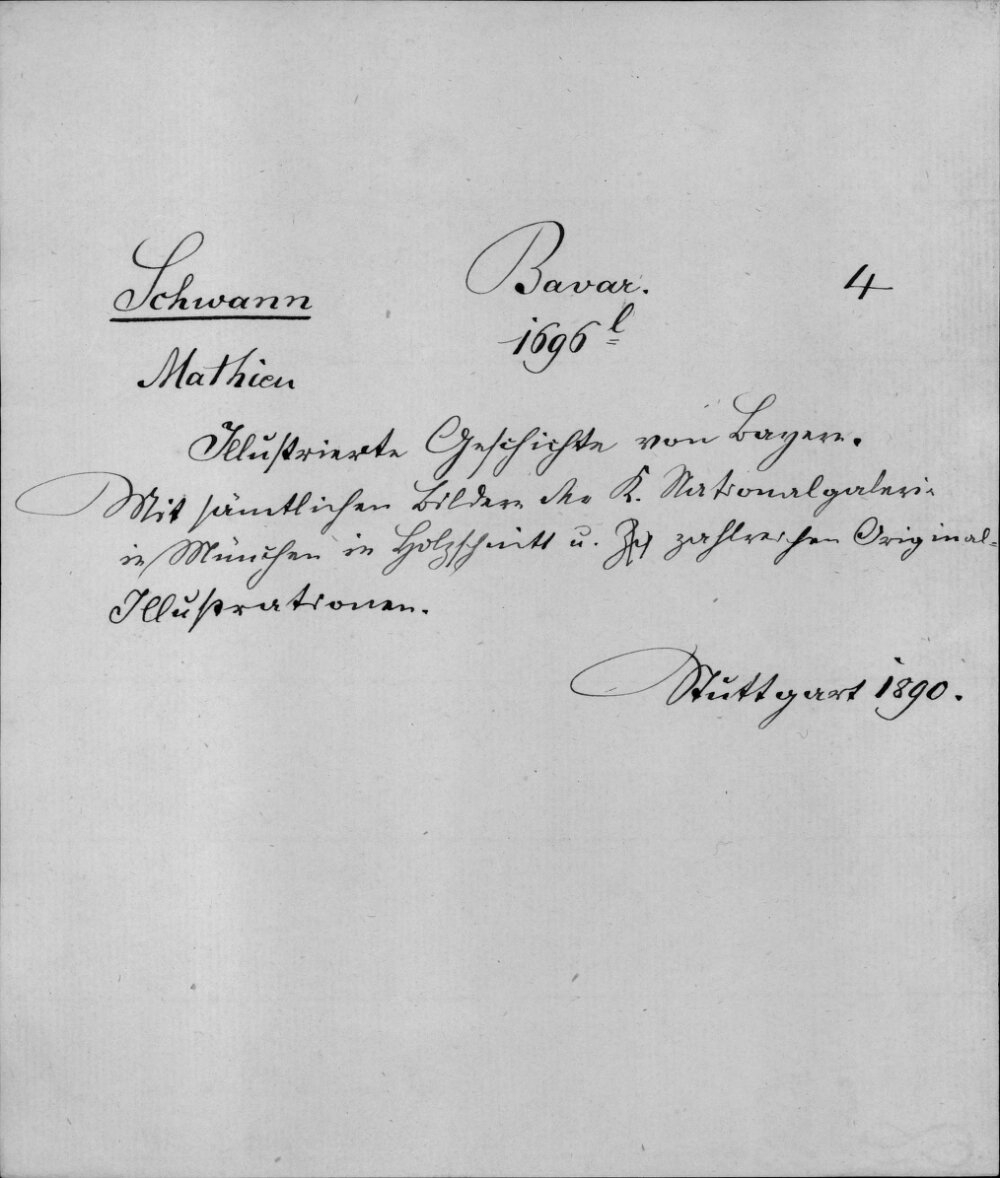 Schwann Bavar. 4
1696 l
Mathieu
Illustrierte Geschichte von Bayern.
Mit sämtlichen Bildern der K. Nationalgalerie
in München in Holzschnitt u. zahlreichen Original-
Illustrationen.
Stuttgart 1890.